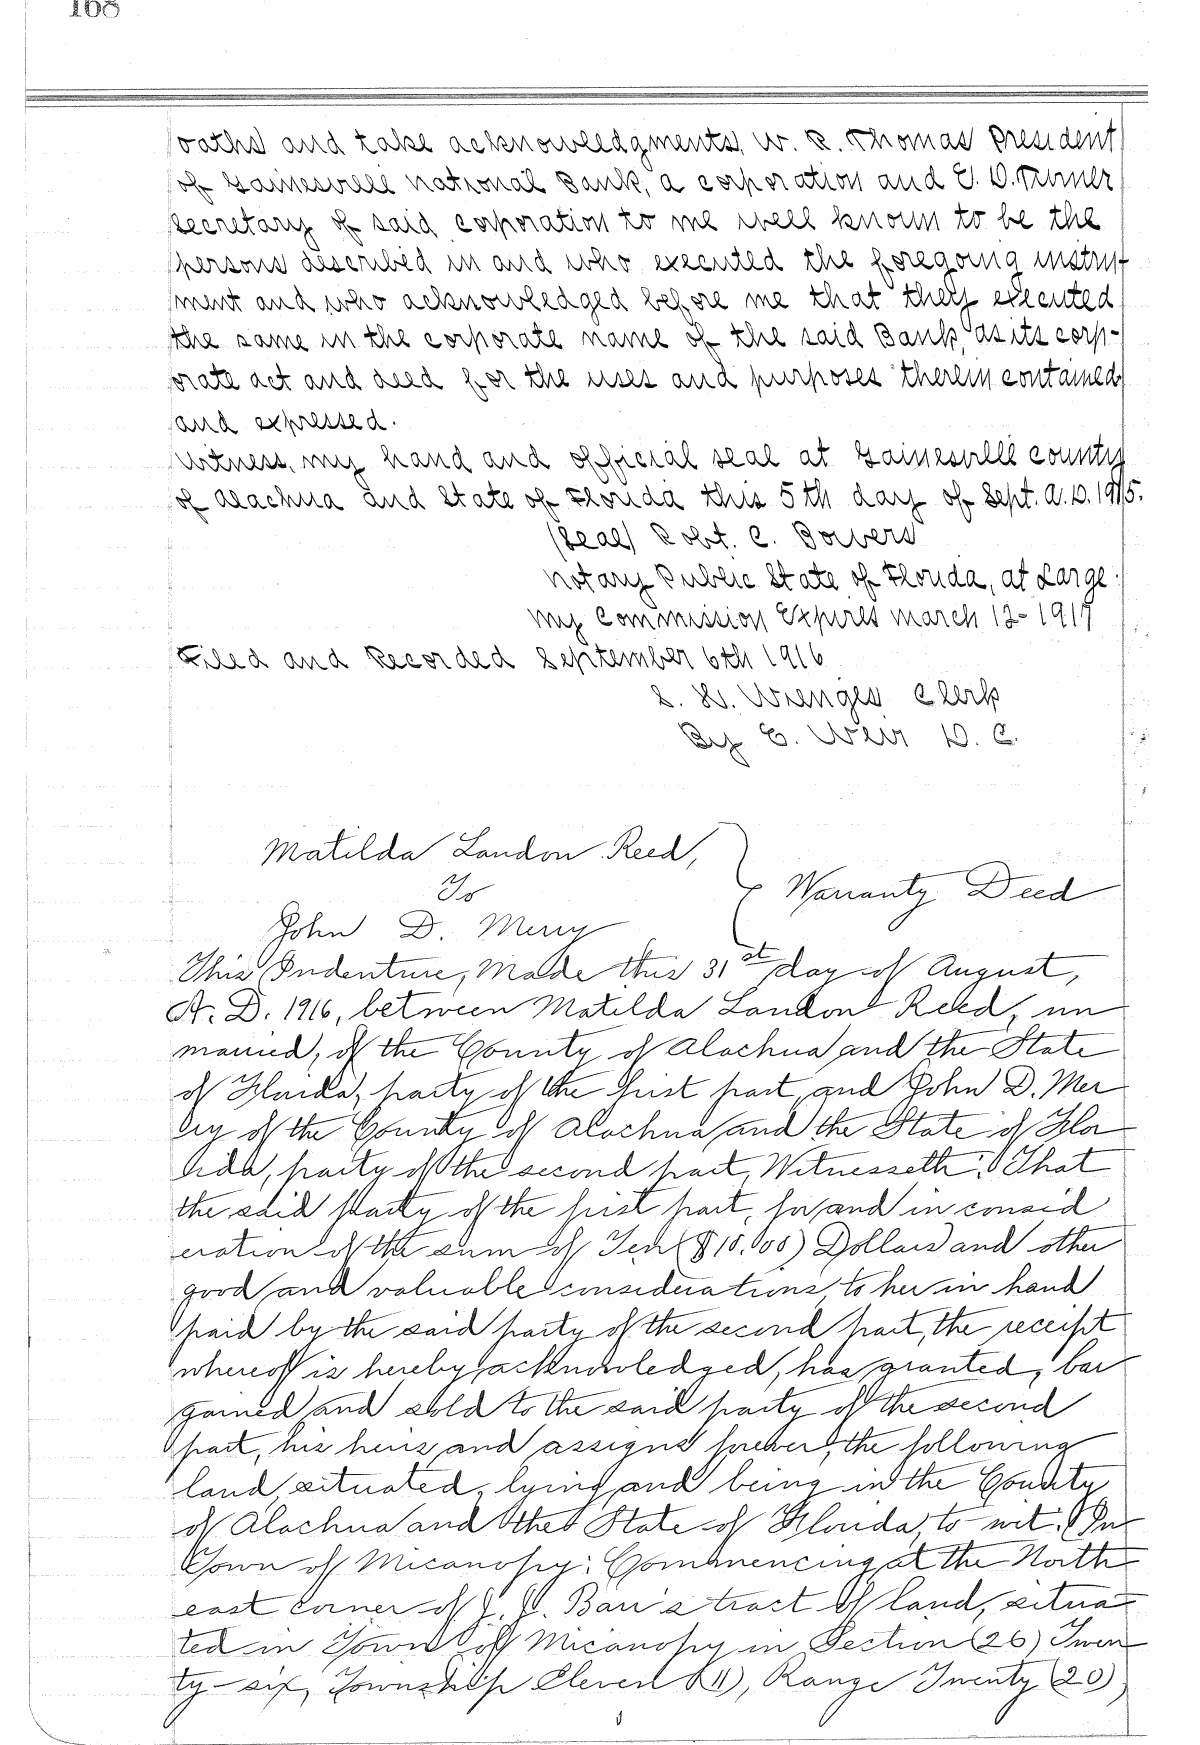 168
oaths and take acknowledgments, W. R. Thomas President
of Gainesville National Bank, a corporation and E. D. Turner
Secretary of said corporation to me well known to be the
persons described in and who executed the foregoing instru-
ment and who acknowledged before me that they executed
the same in the corporate name of the said Bank, as its corp-
orate act and deed for the uses and purposes therein contained
and expressed.
Witness, my hand and official seal at Gainesville county
of Alachua and State of Florida this 5th day of Sept. A.D. 1915.
(Seal) Robt. C. Bowers
Notary Public State of Florida, at Large.
My Commission Expires March 12-1917
Filed and Recorded September 6th 1916
S. H. Wienges Clerk
By E. Weir D. C.
Matilda Landon Reed,
To
Warranty Deed
John D. Merry
This Indenture, Made this 31st day of August,
A. D. 1916, between Matilda Landon Reed, un
married, of the County of Alachua and the State
of Florida, party of the first part, and John D. Mer
ry of the County of Alachua and the State of Flor
ida, party of the second part, Witnesseth: That
the said party of the first part, for and in consid
eration of the sum of Ten ($10.00) Dollars and other
good and valuable considerations, to her in hand
paid by the said party of the second part, the receipt
whereof is hereby acknowledged, has granted, bar
gained and sold to the said party of the second
part, his heirs and assigns forever, the following
land, situated, lying and being in the County
of Alachua and the State of Florida, to wit: In
Town of Micanopy: Commencing at the North
east corner of J. J. Barr's tract of land, situa
ted in Town of Micanopy in Section (26) Twen
ty-six, Township Eleven (11), Range Twenty (20),